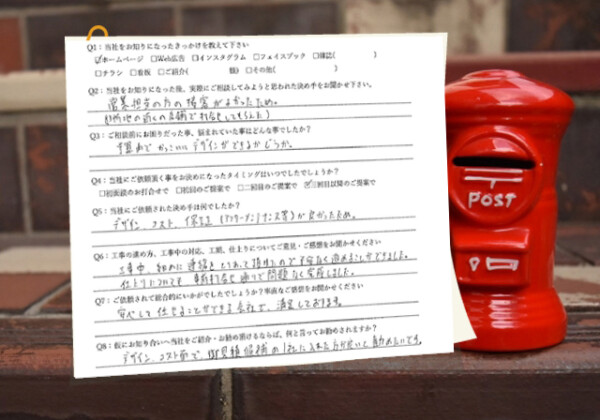 Q1：当社をお知りになったきっかけを教えて下さい
☑ホームページ □Web広告 □インスタグラム □フェイスブック □雑誌( )
□チラシ □看板 □ご紹介( 様) □その他( )
Q2：当社をお知りになった後、実際にご相談してみようと思われた決め手をお聞かせ下さい。
営業担当の方の接客がよかったため。
Q3：ご相談前にお困りだった事、悩まれていた事はどんな事でしたか？
予算内でかっこいいデザインができるかどうか。
Q4：当社にご依頼頂く事をお決めになったタイミングはいつでしたでしょうか？
□初面談のお打合せで □初回のご提案で □二回目のご提案で ☑三回目以降のご提案で
Q5：当社にご依頼された決め手は何でしたか？
デザイン、コスト、保証(アフターメンテナンス等)が良かったため。
Q6：工事の進め方、工事中の対応、工期、仕上りについてご意見・ご感想をお聞かせください
工事中、 連絡を 頂けたので不安なく進めることができました。
仕上りについても 事前打合せ通りで問題なく完成しました。
Q7：ご依頼されて総合的にいかがでしたでしょうか？率直なご感想をお聞かせください
安心して任せることができる会社で、満足しております。
Q8：仮にお知り合いへ当社をご紹介・お勧め頂けるならば、何と言ってお勧めされますか？
デザイン、コスト面で、 見積候補の1社に入れた方が良いと勧めたいです。
POST